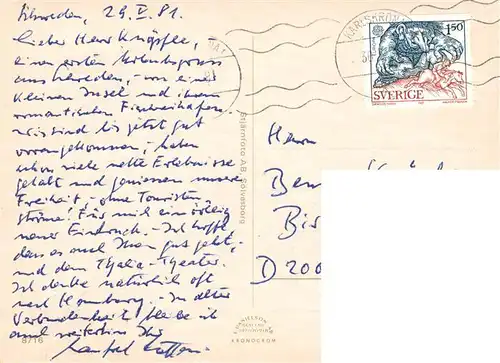 Schweden, 29. V. 81.
Lieber Herr Knöpfle,
einen ersten Urlaubsgruss
aus Schweden, - von einer
kleinen Insel und ihrem
romantischen Fischerhafen.
Wir sind bis jetzt gut
vorangekommen, haben
schon viele nette Erlebnisse
gehabt und geniessen unsere
Freiheit, - ohne Touristen-
ströme! Für mich ein völlig
neuer Eindruck. - Ich hoffe,
dass es auch Ihnen gut geht,
und dem Thalia-Theater.
Ich denke natürlich oft
nach Hamburg. - In alter
Verbundenheit bleibe ich
auch weiterhin Ihr
Manfred
8716
Stjärnfoto AB, Sölvesborg
KRONOGROM
KARLSKRONA
EUROPA
150
SVERIGE
Herrn
Ben
Bis
D 200